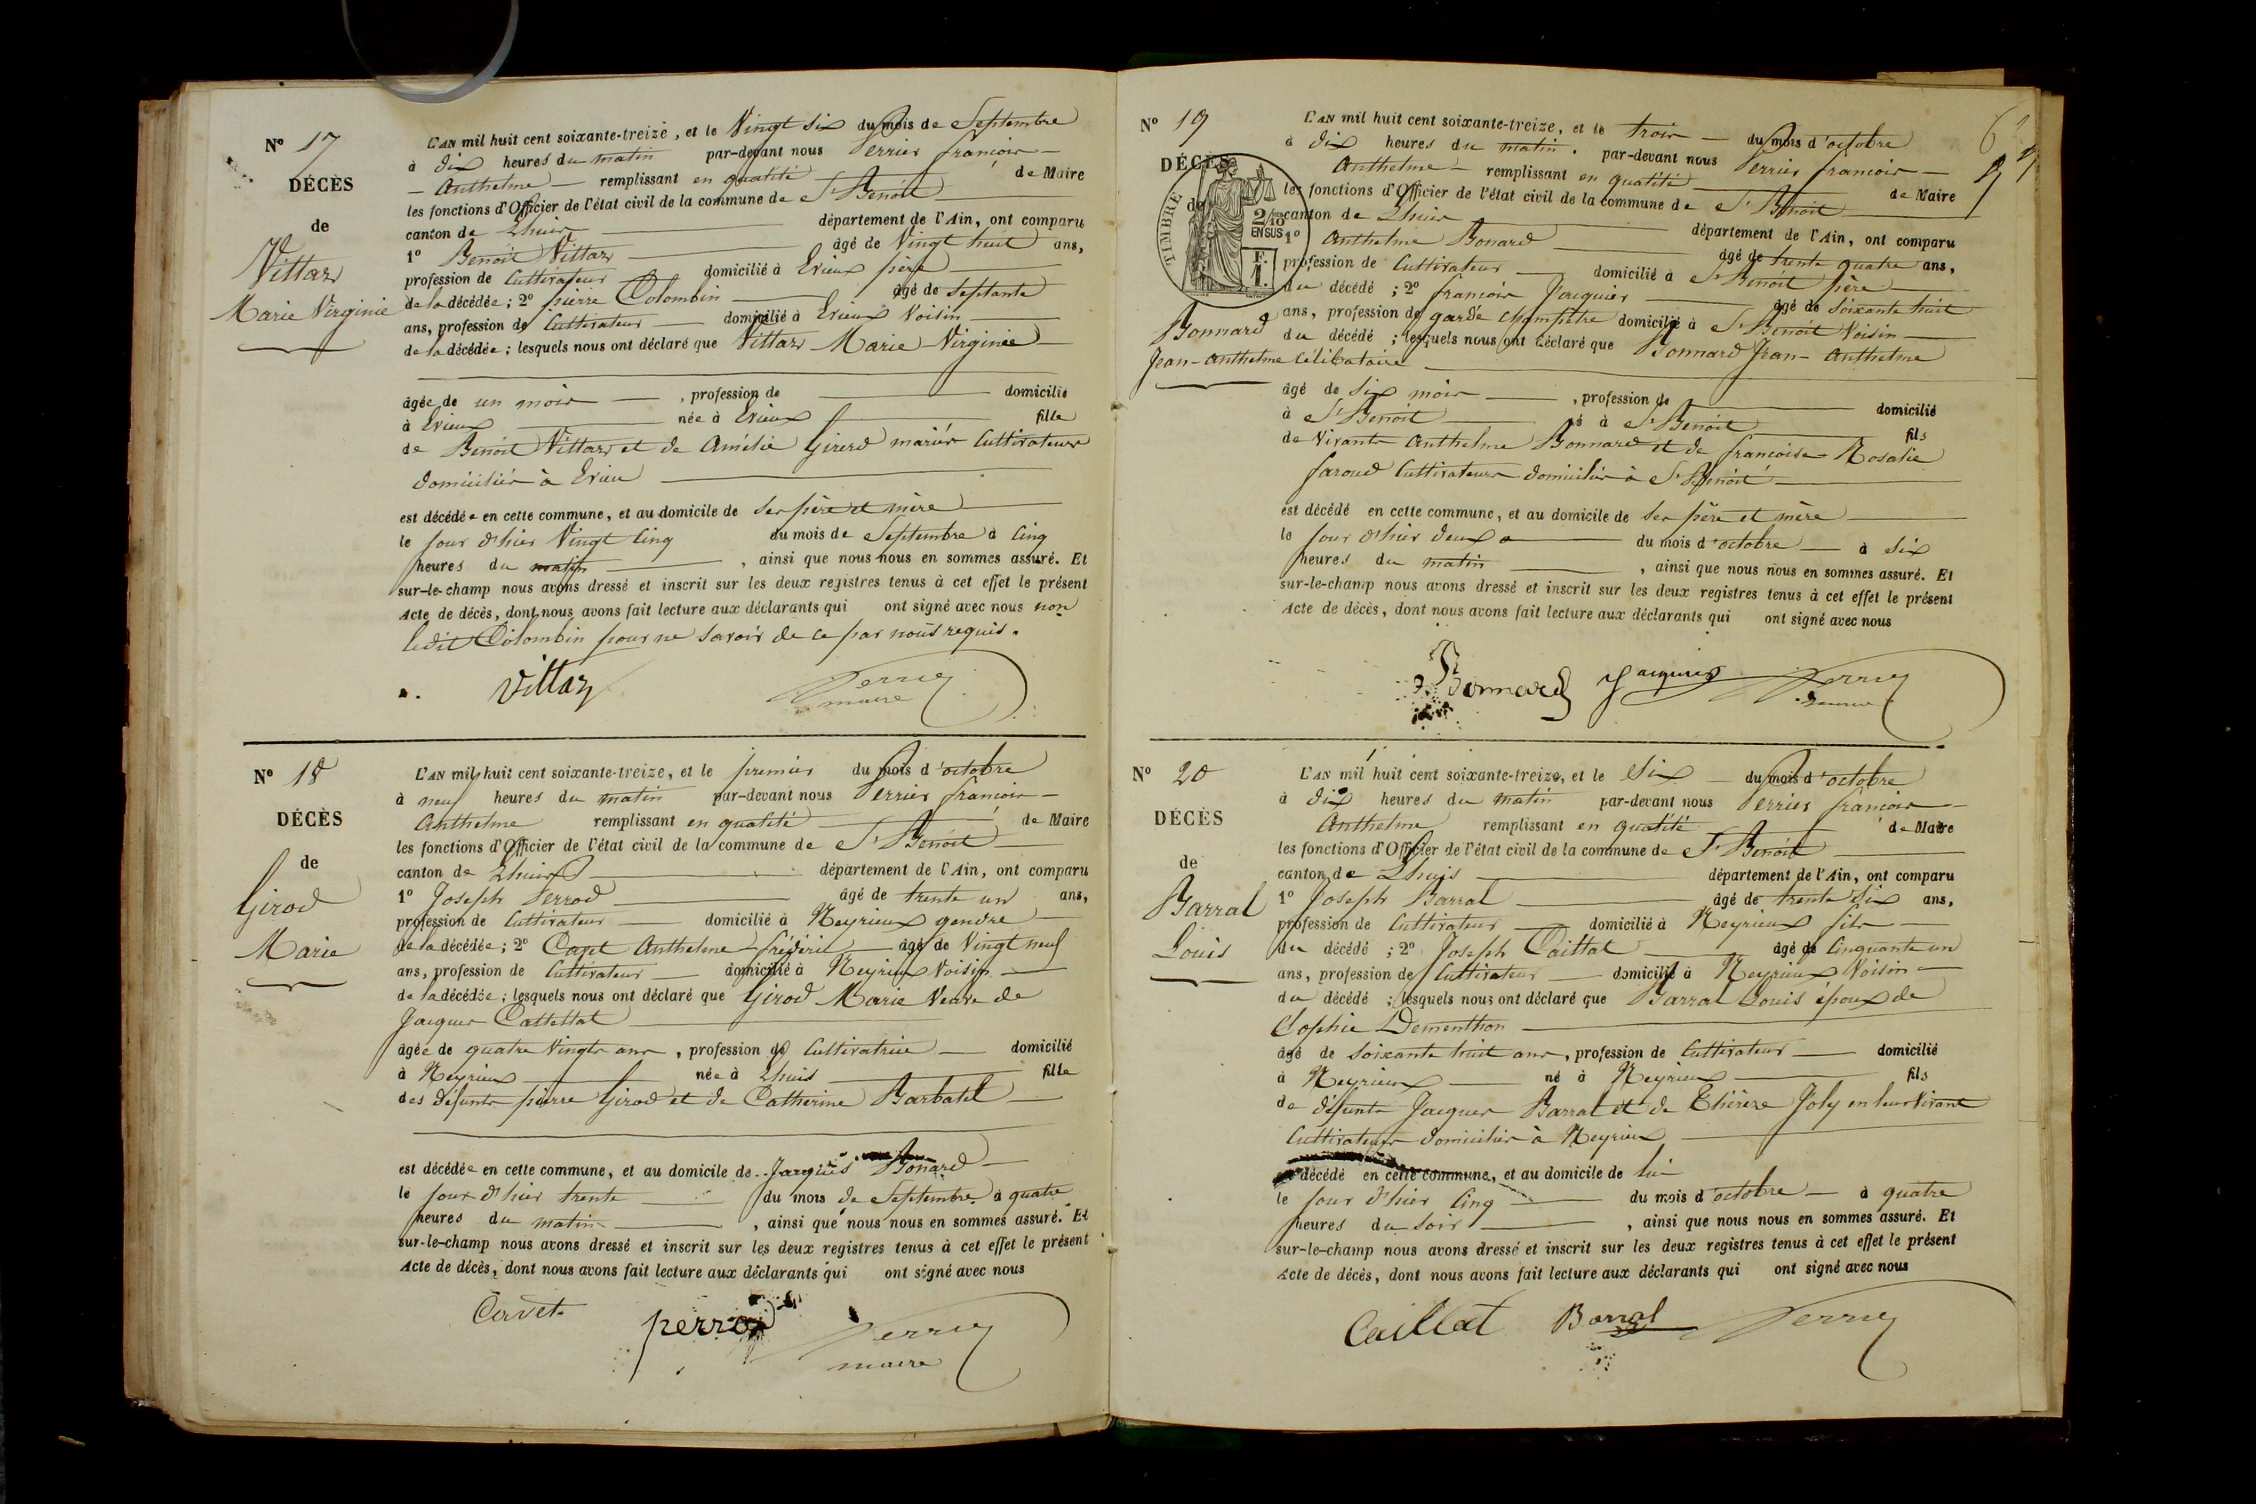 N° 17
DÉCÈS
de
Vittaz
Marie Virginie
L'AN mil huit cent soixante-treize, et le Vingt six du mois de Septembre
à dix heures du matin par-devant nous Perrier françois
Anthelme remplissant en qualité de Maire
les fonctions d'Officier de l'état civil de la commune de St Benoit
canton de Lhuis département de l'Ain, ont comparu
1° Benoit Vittaz âgé de Vingt huit ans,
profession de Cultivateur domicilié à Evieux père
de la décédée; 2° pierre Colombin âgé de Septante
ans, profession de Cultivateur domicilié à Evieux Voisin
de la décédée; lesquels nous ont déclaré que Vittaz Marie Virginie
âgée de un mois, profession de domicilié
à Evieux née à Evieux fille
de Benoit Vittaz et de Amélie Girerd mariés Cultivateurs
domiciliés à Evieu
est décédée en cette commune, et au domicile de Ses père et mère
le jour d'hier Vingt Cinq du mois de Septembre à Cinq
heures du matin, ainsi que nous nous en sommes assuré. Et
sur-le-champ nous avons dressé et inscrit sur les deux registres tenus à cet effet le présent
Acte de décès, dont nous avons fait lecture aux déclarants qui ont signé avec nous non
ledit Colombin pour ne Savoir de ce par nous requis.
Vittaz Perrier
maire
N° 18
DÉCÈS
de
Girod
Marie
L'AN mil huit cent soixante-treize, et le premier du mois d'octobre
à neuf heures du matin par-devant nous Perrier françois
Anthelme remplissant en qualité de Maire
les fonctions d'Officier de l'état civil de la commune de St Benoit
canton de Lhuis département de l'Ain, ont comparu
1° Joseph Perrod âgé de trente un ans,
profession de Cultivateur domicilié à Neyrieux gendre
de la décédée; 2° Anthelme frédéric âgé de Vingt neuf
ans, profession de Cultivateur domicilié à Neyrieux Voisin
de la décédée; lesquels nous ont déclaré que Girod Marie Veuve de
Jacques
âgée de quatre Vingts ans, profession de Cultivatrice domicilié
à Neyrieux née à Lhuis fille
des défunts pierre Girod et de Catherine Barbatel
est décédée en cette commune, et au domicile de Jacques Bonard
le jour d'hier trente du mois de Septembre à quatre
heures du matin, ainsi que nous nous en sommes assuré. Et
sur-le-champ nous avons dressé et inscrit sur les deux registres tenus à cet effet le présent
Acte de décès, dont nous avons fait lecture aux déclarants qui ont signé avec nous
perrod Perrier
maire
N° 19
DÉCÈS
de
TIMBRE
2/10 EN SUS
F. 1.
Bonnard
Jean-Anthelme Célibataire
L'AN mil huit cent soixante-treize, et le trois du mois d'octobre
à dix heures du matin. par-devant nous Perrier françois
Anthelme remplissant en qualité de Maire
les fonctions d'Officier de l'état civil de la commune de St Benoit
canton de Lhuis département de l'Ain, ont comparu
1° Anthelme Bonard âgé de trente quatre ans,
profession de Cultivateur domicilié à St Benoit père
du décédé; 2° françois Jacquier âgé de Soixante huit
ans, profession de garde champêtre domicilié à St Benoit Voisin
du décédé; lesquels nous ont déclaré que Bonnard Jean-Anthelme
âgé de six mois, profession de domicilié
à St Benoit né à St Benoit fils
de Vivants Anthelme Bonnard et de françoise Rosalie
faroud Cultivateurs domiciliés à St Benoit
est décédé en cette commune, et au domicile de Ses père et mère
le jour d'hier deux du mois d'octobre à six
heures du matin, ainsi que nous nous en sommes assuré. Et
sur-le-champ nous avons dressé et inscrit sur les deux registres tenus à cet effet le présent
Acte de décès, dont nous avons fait lecture aux déclarants qui ont signé avec nous
Bonnard Jacquier Perrier
N° 20
DÉCÈS
de
Barral
Louis
L'AN mil huit cent soixante-treize, et le Six du mois d'octobre
à dix heures du matin par-devant nous Perrier françois
Anthelme remplissant en qualité de Maire
les fonctions d'Officier de l'état civil de la commune de St Benoit
canton de Lhuis département de l'Ain, ont comparu
1° Joseph Barral âgé de trente Six ans,
profession de Cultivateur domicilié à Neyrieux fils
du décédé; 2° Joseph Caillat âgé de Cinquante un
ans, profession de Cultivateur domicilié à Neyrieux Voisin
du décédé; lesquels nous ont déclaré que Barral Louis époux de
Sophie Dementhon
âgé de Soixante huit ans, profession de Cultivateur domicilié
à Neyrieux né à Neyrieux fils
de défunts Jacques Barral et de Thérèze Joly en leur Vivant
Cultivateurs domiciliés à Neyrieux
décédé en cette commune, et au domicile de lui
le jour d'hier Cinq du mois d'octobre à quatre
heures du Soir, ainsi que nous nous en sommes assuré. Et
sur-le-champ nous avons dressé et inscrit sur les deux registres tenus à cet effet le présent
Acte de décès, dont nous avons fait lecture aux déclarants qui ont signé avec nous
Caillat Barral Perrier